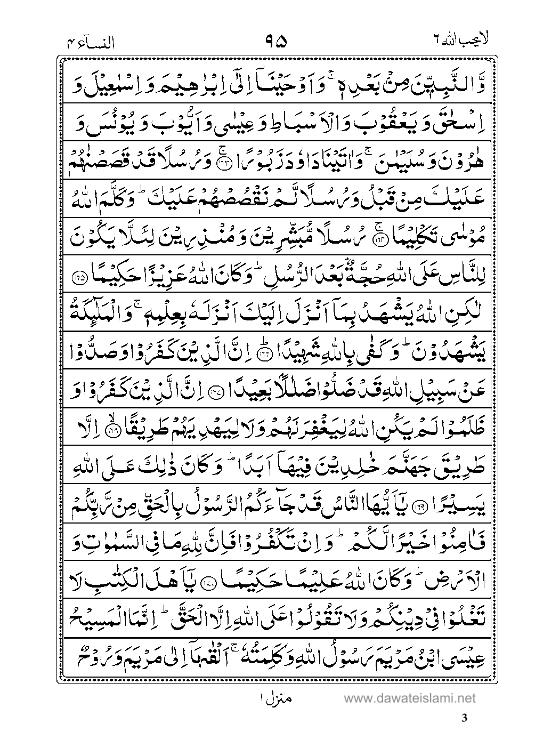 لا یحب اللہ ٦ ٩٥ النسآء ٤
وَّالنَّبِيّٖنَ مِنْۢ بَعْدِهٖ ۚ وَاَوْحَيْنَاۤ اِلٰۤى اِبْرٰهِيْمَ وَاِسْمٰعِيْلَ وَ
اِسْحٰقَ وَيَعْقُوْبَ وَالْاَسْبَاطِ وَعِيْسٰى وَاَيُّوْبَ وَيُوْنُسَ وَ
هٰرُوْنَ وَسُلَيْمٰنَ ۚ وَاٰتَيْنَا دَاوٗدَ زَبُوْرًا ۚ﴿۱۶۳﴾ وَرُسُلًا قَدْ قَصَصْنٰهُمْ
عَلَيْكَ مِنْ قَبْلُ وَرُسُلًا لَّمْ نَقْصُصْهُمْ عَلَيْكَ ؕ وَكَلَّمَ اللهُ
مُوْسٰى تَكْلِيْمًا ۚ﴿۱۶۴﴾ رُسُلًا مُّبَشِّرِيْنَ وَمُنْذِرِيْنَ لِئَلَّا يَكُوْنَ
لِلنَّاسِ عَلَى اللهِ حُجَّةٌۢ بَعْدَ الرُّسُلِ ؕ وَكَانَ اللهُ عَزِيْزًا حَكِيْمًا ﴿۱۶۵﴾
لٰكِنِ اللهُ يَشْهَدُ بِمَاۤ اَنْزَلَ اِلَيْكَ اَنْزَلَهٗ بِعِلْمِهٖ ۚ وَالْمَلٰٓئِكَةُ
يَشْهَدُوْنَ ؕ وَكَفٰى بِاللهِ شَهِيْدًا ﴿۱۶۶﴾ اِنَّ الَّذِيْنَ كَفَرُوْا وَصَدُّوْا
عَنْ سَبِيْلِ اللهِ قَدْ ضَلُّوْا ضَلٰلًۢا بَعِيْدًا ﴿۱۶۷﴾ اِنَّ الَّذِيْنَ كَفَرُوْا وَ
ظَلَمُوْا لَمْ يَكُنِ اللهُ لِيَغْفِرَ لَهُمْ وَلَا لِيَهْدِيَهُمْ طَرِيْقًا ۙ﴿۱۶۸﴾ اِلَّا
طَرِيْقَ جَهَنَّمَ خٰلِدِيْنَ فِيْهَاۤ اَبَدًا ؕ وَكَانَ ذٰلِكَ عَلَى اللهِ
يَسِيْرًا ﴿۱۶۹﴾ يٰۤاَيُّهَا النَّاسُ قَدْ جَآءَكُمُ الرَّسُوْلُ بِالْحَقِّ مِنْ رَّبِّكُمْ
فَاٰمِنُوْا خَيْرًا لَّكُمْ ؕ وَاِنْ تَكْفُرُوْا فَاِنَّ لِلّٰهِ مَا فِى السَّمٰوٰتِ وَ
الْاَرْضِ ؕ وَكَانَ اللهُ عَلِيْمًا حَكِيْمًا ﴿۱۷۰﴾ يٰۤاَهْلَ الْكِتٰبِ لَا
تَغْلُوْا فِيْ دِيْنِكُمْ وَلَا تَقُوْلُوْا عَلَى اللهِ اِلَّا الْحَقَّ ؕ اِنَّمَا الْمَسِيْحُ
عِيْسَى ابْنُ مَرْيَمَ رَسُوْلُ اللهِ وَكَلِمَتُهٗ ۚ اَلْقٰىهَاۤ اِلٰى مَرْيَمَ وَرُوْحٌ
منزل ١
www.dawateislami.net
3